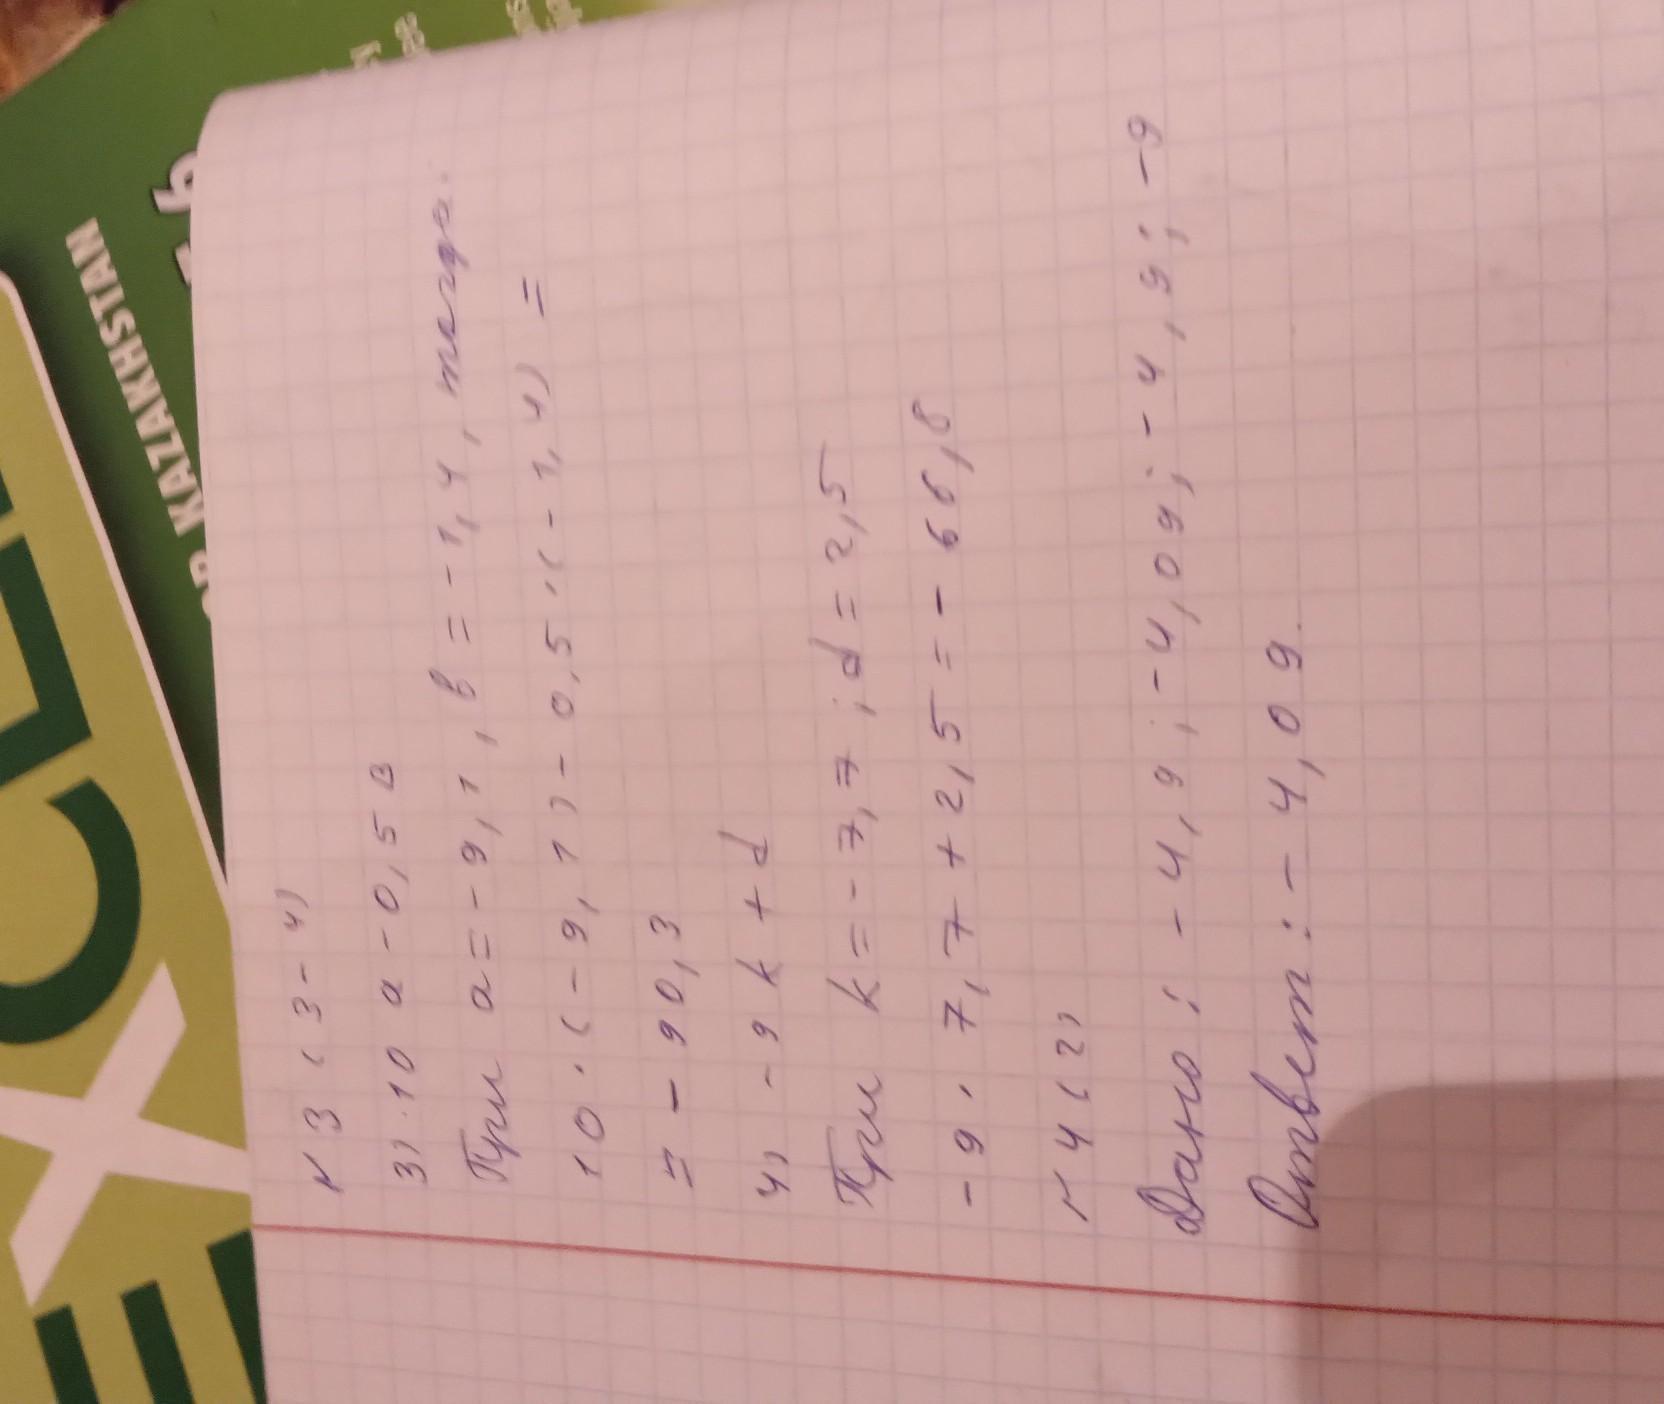 N 3 (3-4)
3) 10 а - 0,5 в
При а = - 9,1, в = - 1,4, тогда.
10 · (- 9,1) - 0,5 · (- 1,4) =
= - 90,3
4) - 9 k + d
При k = - 7,7; d = 2,5
- 9 · 7,7 + 2,5 = - 66,8
N 4 (2)
Дано: - 4,9; - 4,09; - 4,9; - 9
Ответ: - 4,09.
KAZAKHSTAN
EXCEL